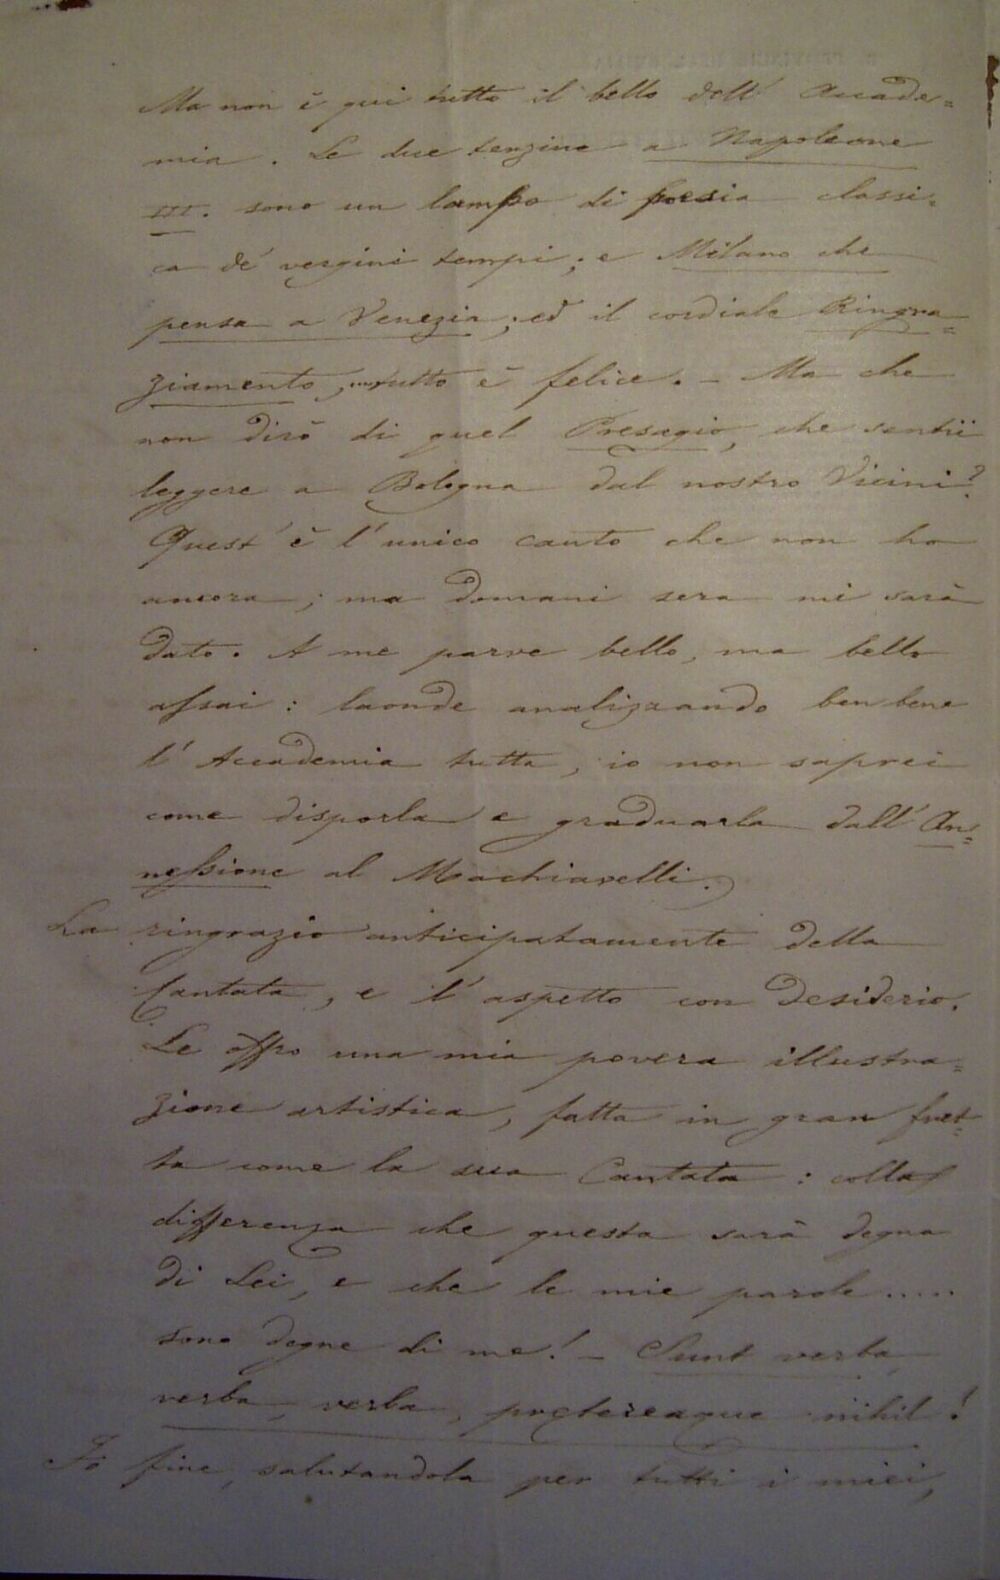 Ma non è qui tutto il bello dell' Accade=
mia. Le due terzine a Napoleone
III. sono un lampo di poesia classi=
ca de' vergini tempi; e Milano che
pensa a Venezia; ed il cordiale Ringra=
ziamento, tutto è felice. - Ma che
non dirò di quel Presagio, che sentii
leggere a Bologna dal nostro Vicini?
Quest' è l'unico canto che non ho
ancora; ma domani sera mi sarà
dato. A me parve bello, ma bello
assai: laonde analizzando ben bene
l'Accademia tutta, io non saprei
come disporla e graduarla dall' An=
nessione al Machiavelli.
La ringrazio anticipatamente della
Cantata, e l'aspetto con desiderio.
Le offro una mia povera illustra=
zione artistica, fatta in gran fret=
ta come la sua Cantata: colla
differenza che questa sarà degna
di Lei, e che le mie parole .....
sono degne di me! - Sunt verba,
verba, verba, prętereaque nihil!
Fo fine, salutandola per tutti i miei,